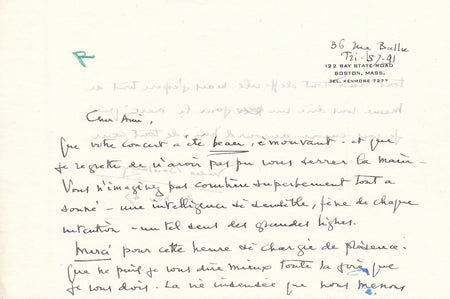 R
36 rue Ballu
Tri. 57-91
122 BAY STATE ROAD
BOSTON, MASS.
TEL. KENMORE 7277
Cher Ami,
Que votre concert a été beau, émouvant - et que
je regrette de n'avoir pas pu vous serrer la main -
Vous n'imaginez pas combien superbement tout a
sonné - une intelligence si sensible, fine de chaque
intention - un tel sens des grandes lignes.
Merci pour cette heure si chargée de présence -
Que ne puis je vous dire mieux toute la joie que
je vous dois. La vie insensée que nous menons